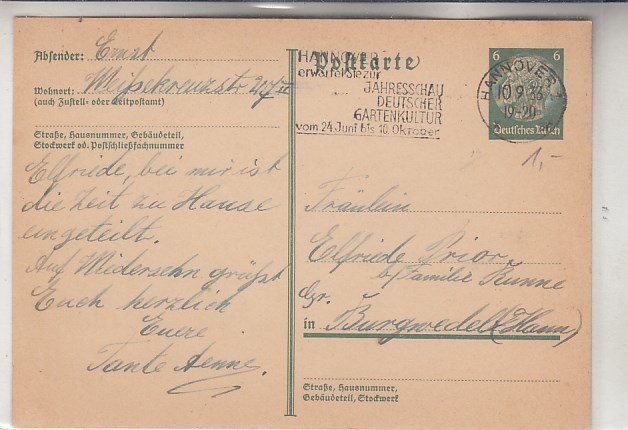 Absender: Ernst
Weißekreuzstr
Wohnort:
(auch Zustell- oder Leitpostamt)
Straße, Hausnummer, Gebäudeteil,
Stockwerk od. Postschließfachnummer
Elfriede, bei mir ist
die Zeit zu Hause
eingeteilt.
Auf Widersehn grüßt
Euch herzlich
Euere
Tante Aenne.
Postkarte
HANNOVER
erwartet Sie zur
JAHRESSCHAU
DEUTSCHER
GARTENKULTUR
vom 24. Juni bis 16. Oktober
6 6
HANNOVER
10.9.33
19-20
Deutsches Reich
1,-
Fräulein
Elfriede Prior
b/Familie Runne
Gr.
in Burgwedel (Hann)
Straße, Hausnummer,
Gebäudeteil, Stockwerk